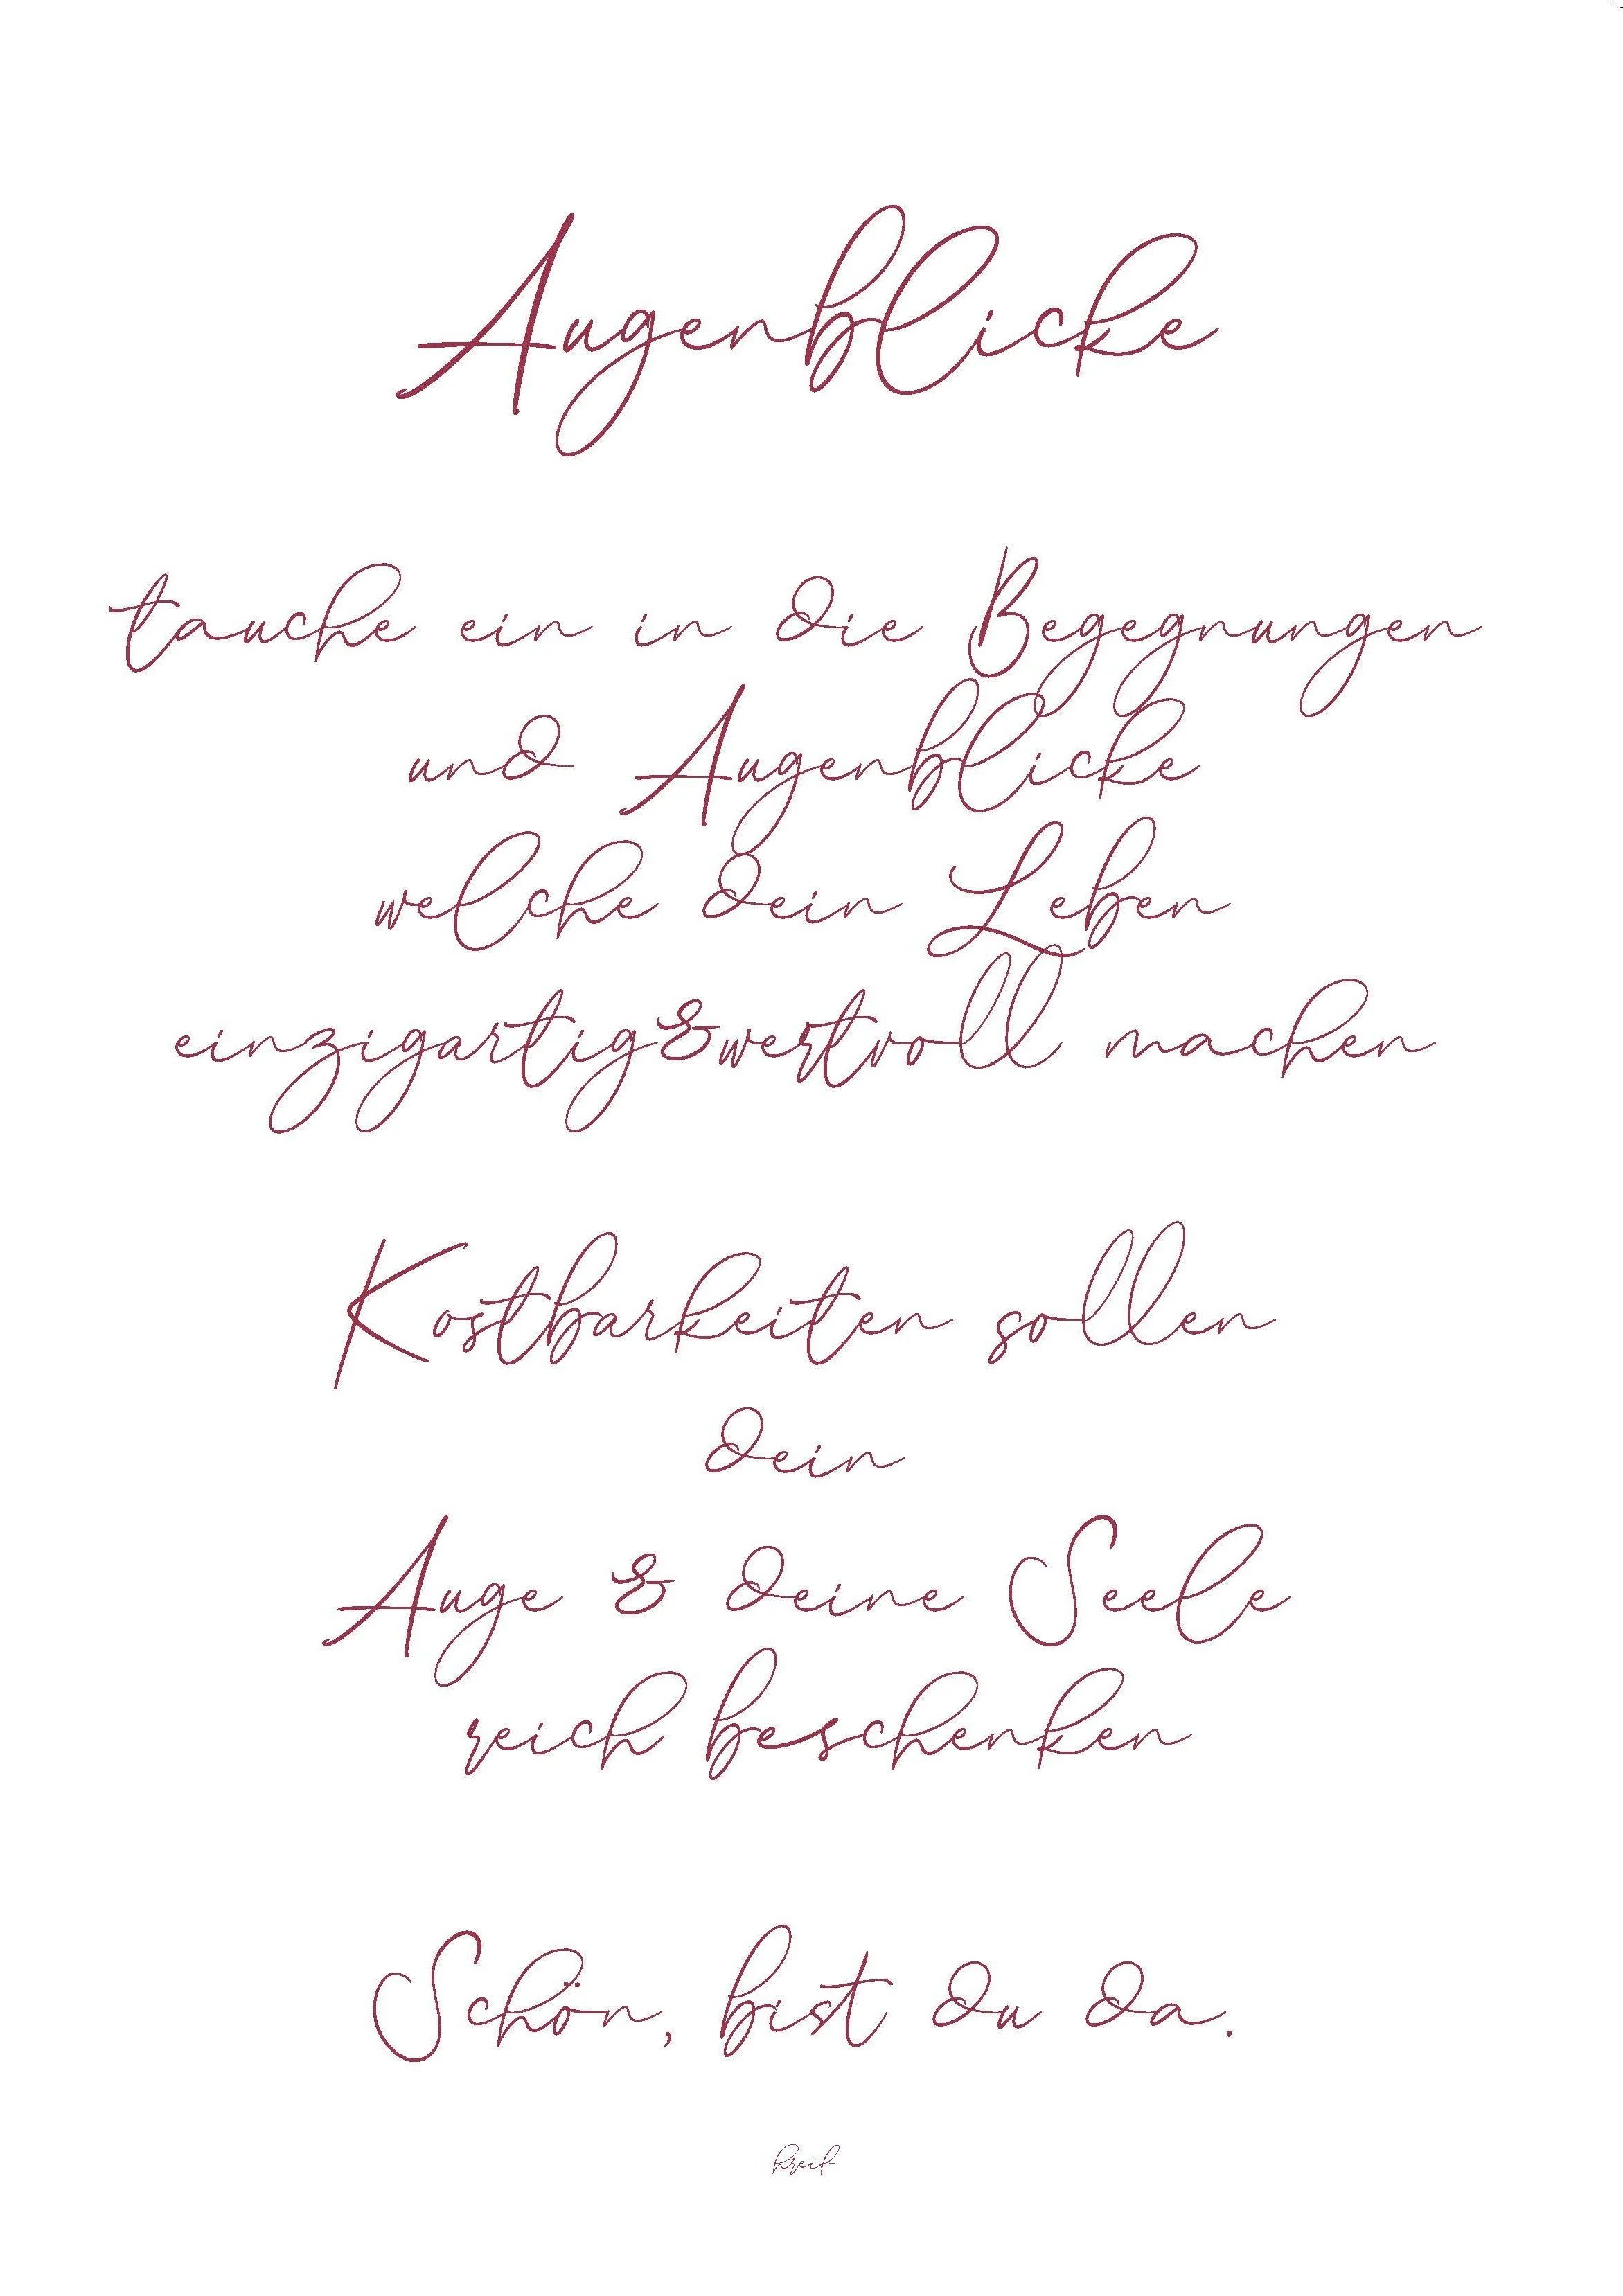 Augenblicke
tauche ein in die Begegnungen
und Augenblicke
welche dein Leben
einzigartig&wertvoll machen
Kostbarkeiten sollen
dein
Auge & deine Seele
reich beschenken
Schön, bist du da.